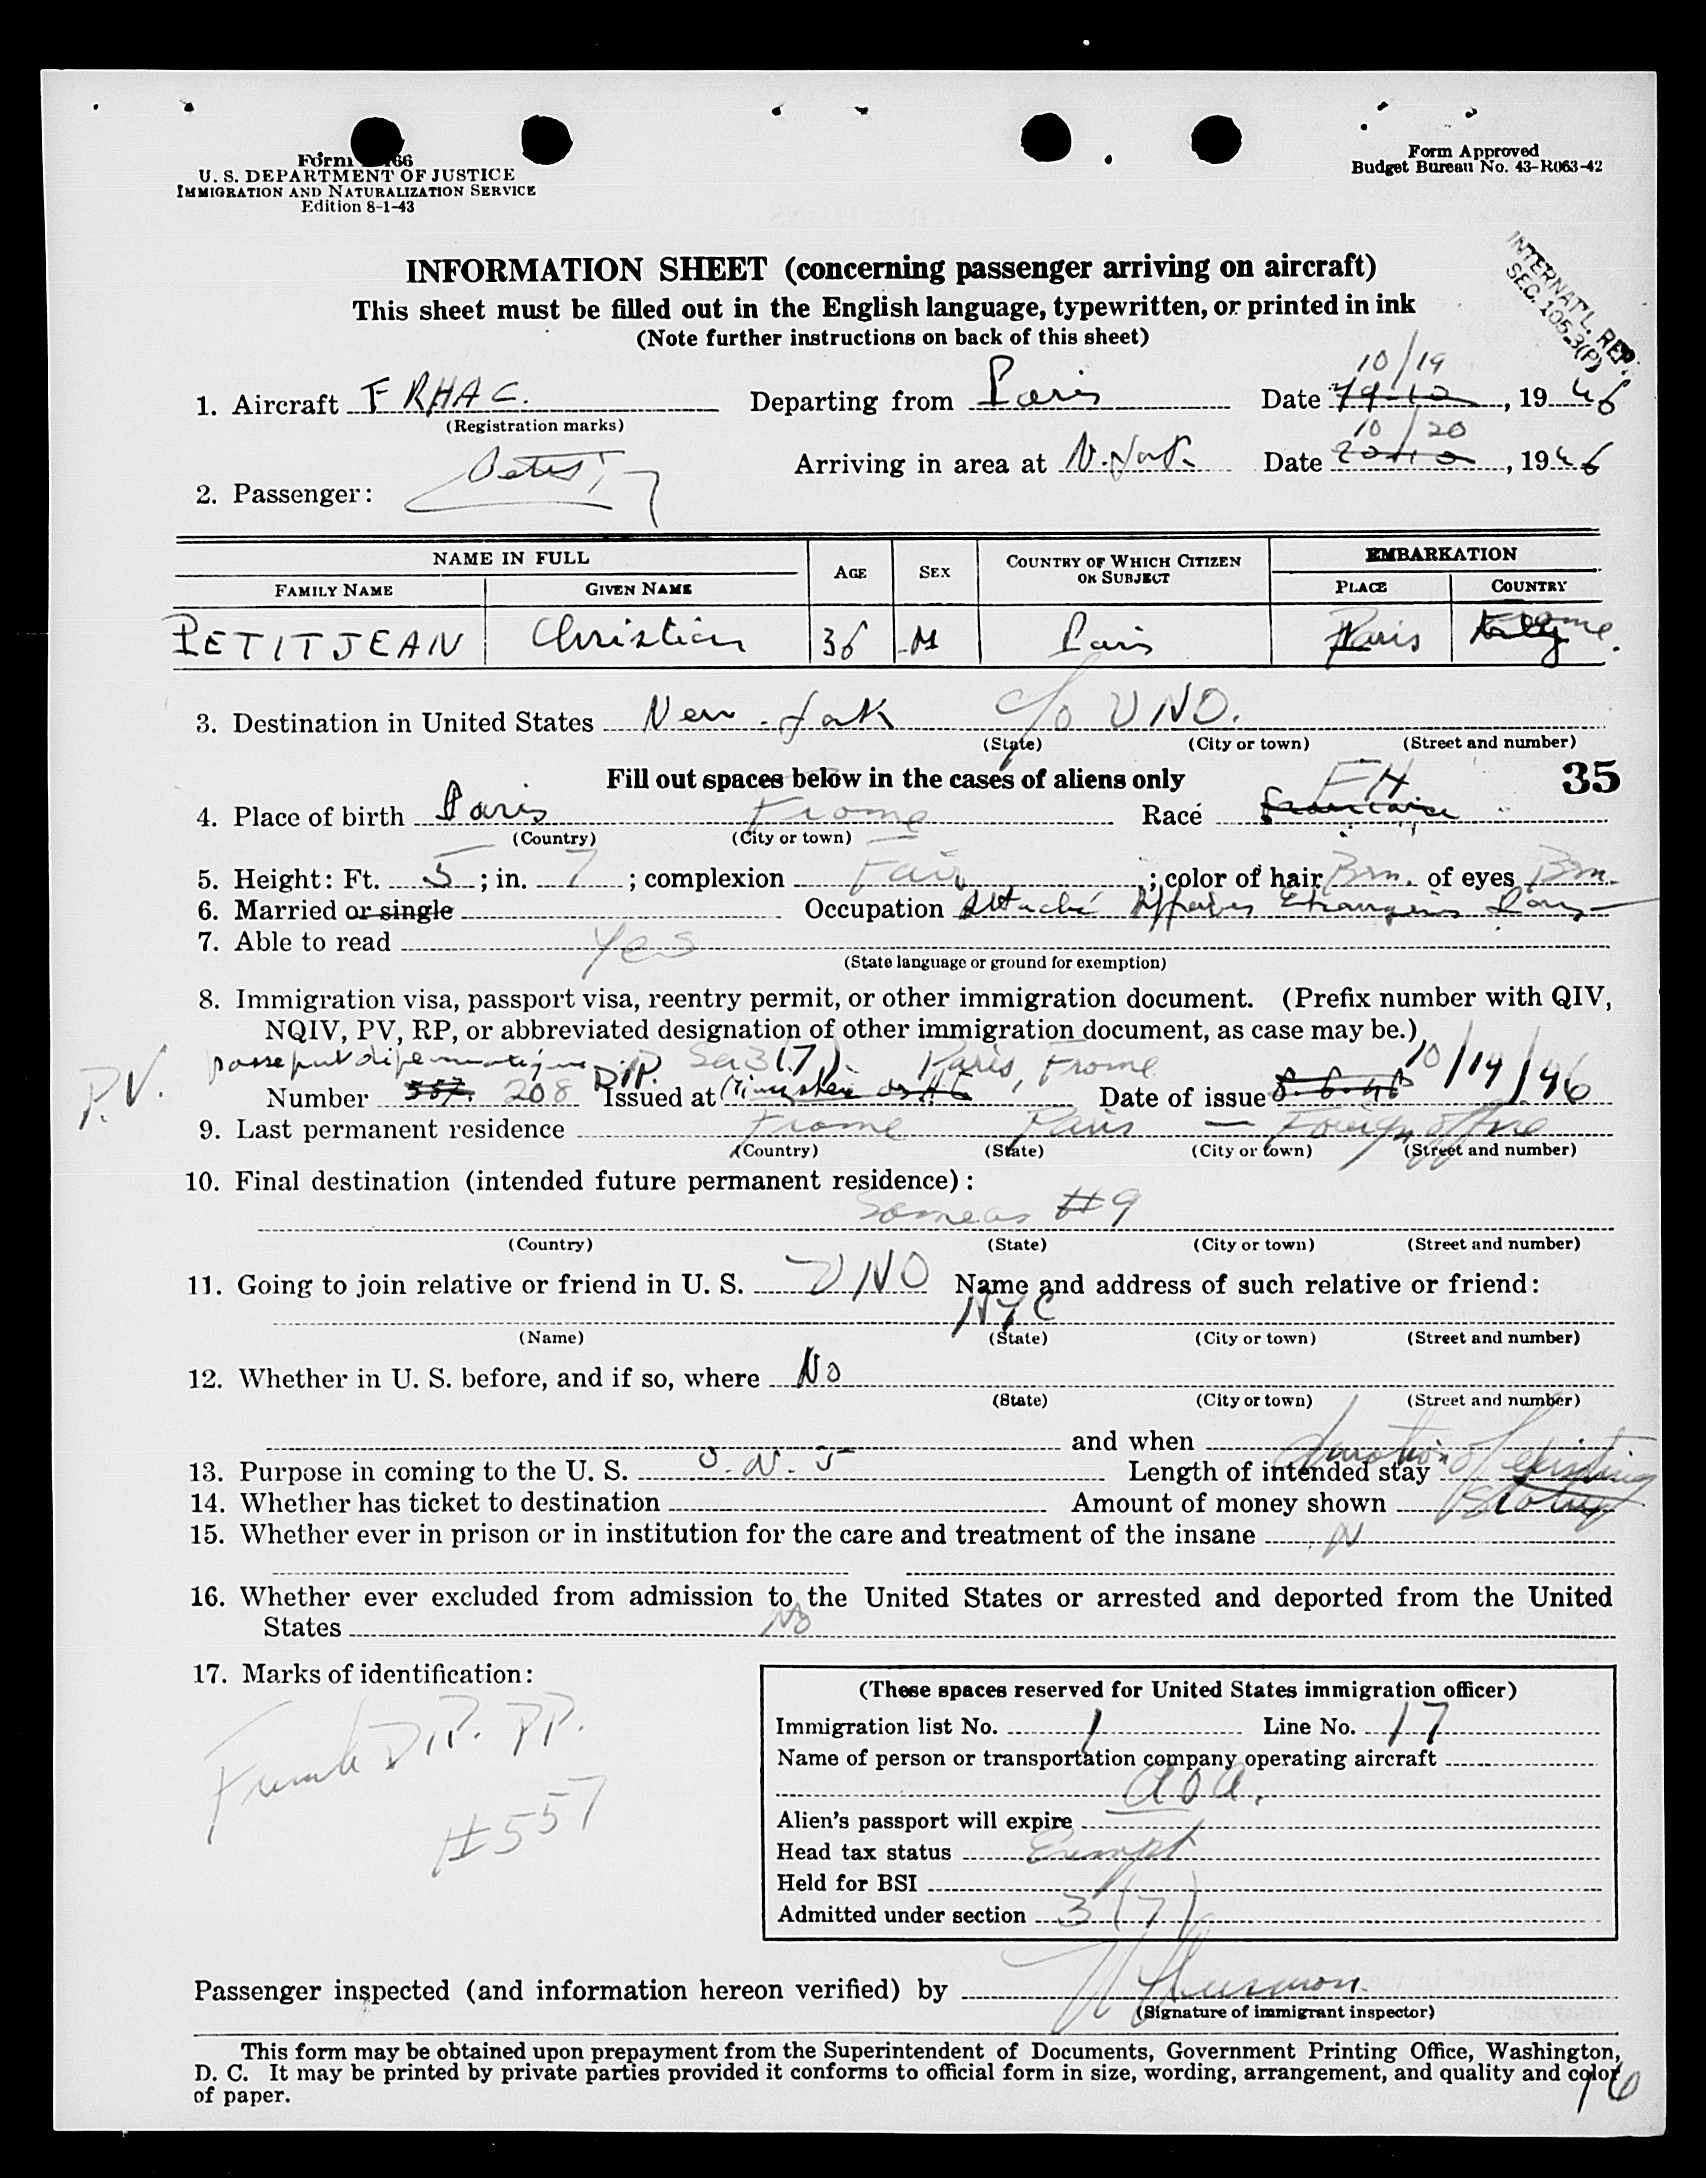 Form 66
U. S. DEPARTMENT OF JUSTICE
IMMIGRATION AND NATURALIZATION SERVICE
Edition 8-1-43
Form Approved
Budget Bureau No. 43-R063-42
INTERNAT'L. REP.
SEC. 105.3(P)
INFORMATION SHEET (concerning passenger arriving on aircraft)
This sheet must be filled out in the English language, typewritten, or printed in ink
(Note further instructions on back of this sheet)
10/19
1. Aircraft F RHAC. Departing from Paris Date 19-10, 1946
(Registration marks)
10/20
Arriving in area at N. York Date 20-10, 1946
2. Passenger:
NAME IN FULL AGE SEX COUNTRY OF WHICH CITIZEN OR SUBJECT EMBARKATION
FAMILY NAME GIVEN NAME PLACE COUNTRY
PETITJEAN Christian 36 M Paris Paris France.
3. Destination in United States New-York c/o UNO.
(State) (City or town) (Street and number)
Fill out spaces below in the cases of aliens only 35
4. Place of birth Paris France Race Francaise FH
(Country) (City or town)
5. Height: Ft. 5; in. 7; complexion Fair; color of hair Brn. of eyes Brn.
6. Married or single Occupation Attaché Affaires Etrangères Paris
7. Able to read Yes
(State language or ground for exemption)
8. Immigration visa, passport visa, reentry permit, or other immigration document. (Prefix number with QIV,
NQIV, PV, RP, or abbreviated designation of other immigration document, as case may be.)
P.V. passeport diplomatique DIP. Sec 3(7) Paris, France 10/14/46
Number 557 208 Issued at Date of issue 8-6-46
9. Last permanent residence France Paris — Foreign Office
(Country) (State) (City or town) (Street and number)
10. Final destination (intended future permanent residence):
Same as #9
(Country) (State) (City or town) (Street and number)
11. Going to join relative or friend in U. S. UNO Name and address of such relative or friend:
NYC
(Name) (State) (City or town) (Street and number)
12. Whether in U. S. before, and if so, where No
(State) (City or town) (Street and number)
and when
13. Purpose in coming to the U. S. Length of intended stay duration of existing
14. Whether has ticket to destination Amount of money shown status
15. Whether ever in prison or in institution for the care and treatment of the insane N
16. Whether ever excluded from admission to the United States or arrested and deported from the United
States No
17. Marks of identification:
French DIP. PP.
#557
(These spaces reserved for United States immigration officer)
Immigration list No. 1 Line No. 17
Name of person or transportation company operating aircraft
AOA.
Alien's passport will expire
Head tax status Exempt
Held for BSI
Admitted under section 3(7)
Passenger inspected (and information hereon verified) by
(Signature of immigrant inspector)
This form may be obtained upon prepayment from the Superintendent of Documents, Government Printing Office, Washington,
D. C. It may be printed by private parties provided it conforms to official form in size, wording, arrangement, and quality and color
of paper.
16